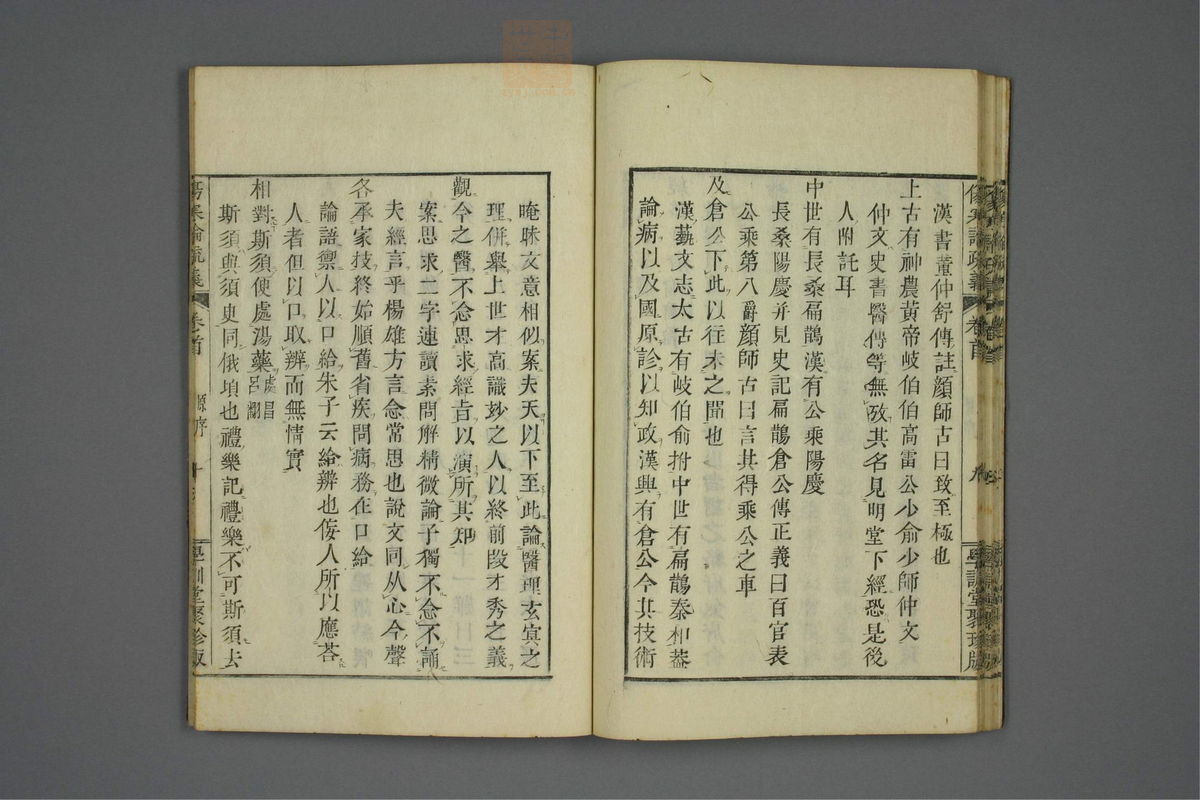 漢書董仲舒傳註顔師古曰致至極也
上古有神農黃帝岐伯伯高雷公少俞少師仲文
仲文史書醫傳等無攷其名見明堂下經恐是後
人附託耳
中世有長桑扁鵲漢有公乘陽慶
長桑陽慶并見史記扁鵲倉公傳正義曰百官表
公乘第八爵顔師古曰言其得乘公之車
及倉公下此以往未之聞也
漢藝文志太古有岐伯俞拊中世有扁鵲秦和蓋
論病以及國原診以知政漢興有倉公今其技術
晻昧文意相似案夫天以下至此論醫理玄冥之
理併舉上世才高識妙之人以終前段才秀之義
觀今之醫不念思求經旨以演所其知
案思求二字連讀素問解精微論子獨不念不誦
夫經言乎楊雄方言念常思也說文同从心今聲
各承家技終始順舊省疾問病務在口給
論語禦人以口給朱子云給辨也佞人所以應荅
人者但以口取辨而無情實
相對斯須便處湯藥處昌呂翻
斯須與須臾同俄頃也禮樂記禮樂不可斯須去
傷寒論疏義
卷首
原序
十
學訓堂聚珍版